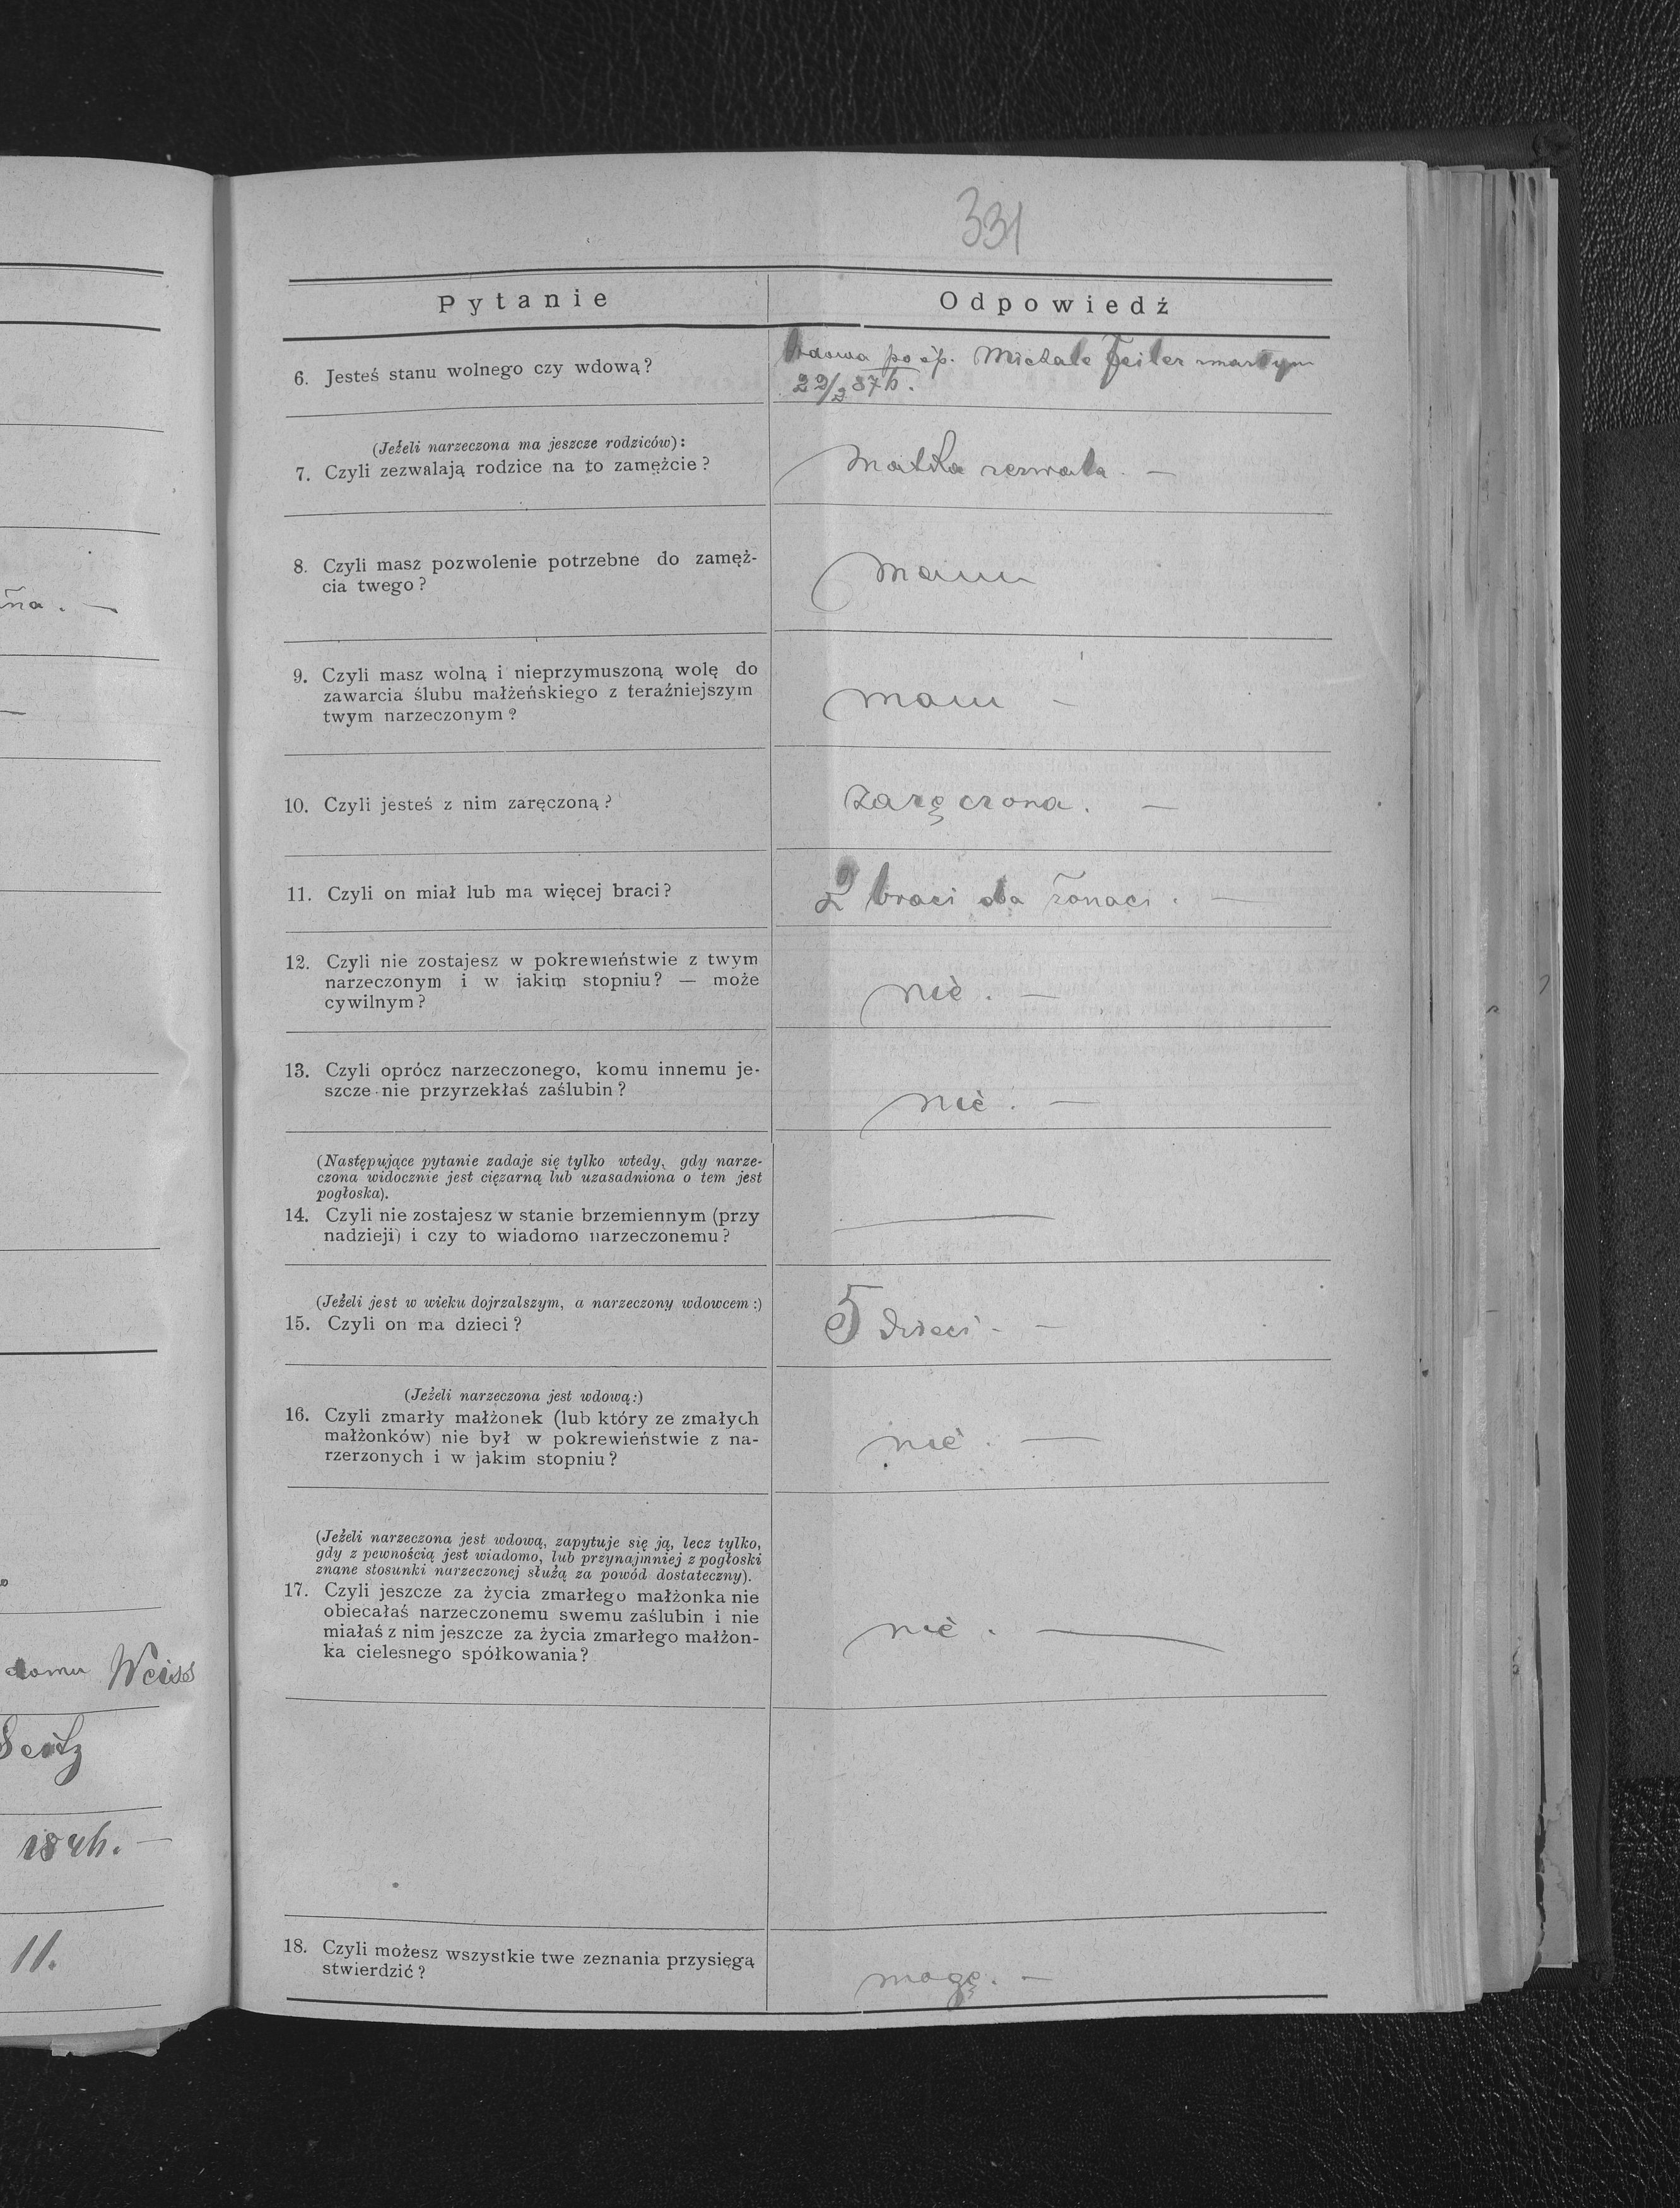 331
Pytanie
Odpowiedź
6. Jesteś stanu wolnego czy wdową?
Wdowa po śp. Michale Feiler zmarłym
22/2 87h.
(Jeżeli narzeczona ma jeszcze rodziców):
7. Czyli zezwalają rodzice na to zamężcie?
Matka zezwala. —
8. Czyli masz pozwolenie potrzebne do zamęż-
cia twego?
mam
9. Czyli masz wolną i nieprzymuszoną wolę do
zawarcia ślubu małżeńskiego z teraźniejszym
twym narzeczonym?
mam —
10. Czyli jesteś z nim zaręczoną?
zaręczona. —
11. Czyli on miał lub ma więcej braci?
2 braci oba żonaci. —
12. Czyli nie zostajesz w pokrewieństwie z twym
narzeczonym i w jakim stopniu? — może
cywilnym?
nie. —
13. Czyli oprócz narzeczonego, komu innemu je-
szcze nie przyrzekłaś zaślubin?
nie. —
(Następujące pytanie zadaje się tylko wtedy, gdy narze-
czona widocznie jest ciężarną lub uzasadniona o tem jest
pogłoska).
14. Czyli nie zostajesz w stanie brzemiennym (przy
nadzieji) i czy to wiadomo narzeczonemu?
—
(Jeżeli jest w wieku dojrzalszym, a narzeczony wdowcem:)
15. Czyli on ma dzieci?
5 dzieci. —
(Jeżeli narzeczona jest wdową:)
16. Czyli zmarły małżonek (lub który ze zmałych
małżonków) nie był w pokrewieństwie z na-
rzerzonych i w jakim stopniu?
nie. —
(Jeżeli narzeczona jest wdową, zapytuje się ją, lecz tylko,
gdy z pewnością jest wiadomo, lub przynajmniej z pogłoski
znane stosunki narzeczonej służą za powód dostateczny).
17. Czyli jeszcze za życia zmarłego małżonka nie
obiecałaś narzeczonemu swemu zaślubin i nie
miałaś z nim jeszcze za życia zmarłego małżon-
ka cielesnego spółkowania?
nie. —
18. Czyli możesz wszystkie twe zeznania przysięgą
stwierdzić?
mogę. —
domu Weiss
Seitz
184h. —
11.